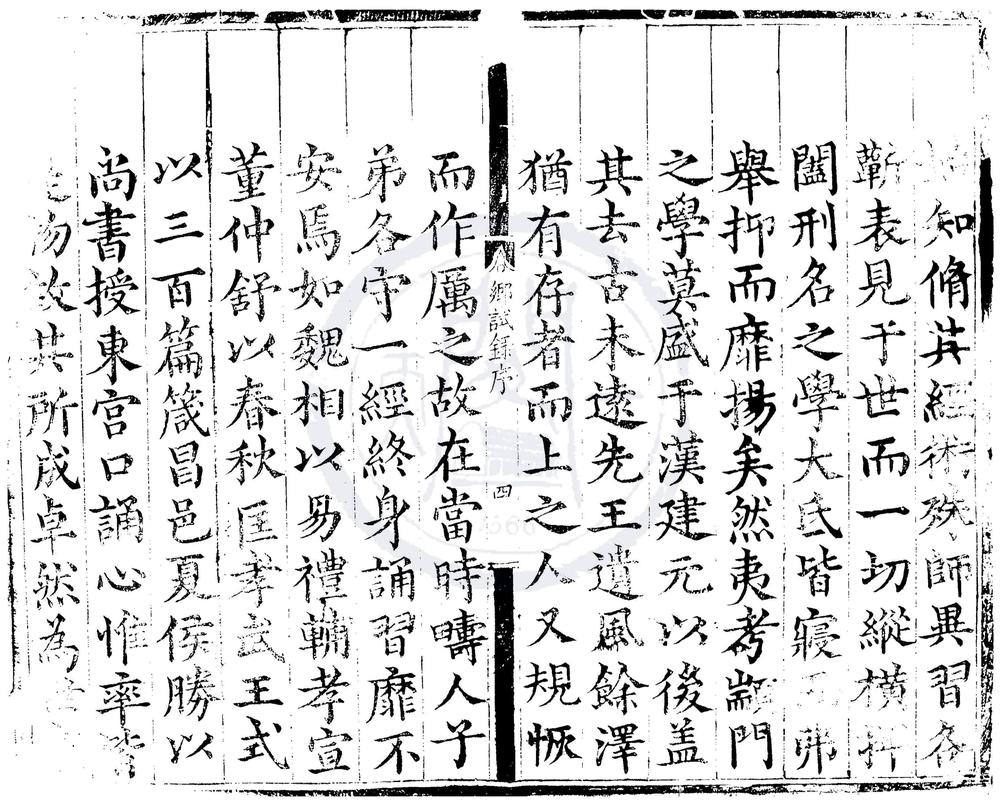 知脩其經術殊師異習各
蘄表見于世而一切縱橫捭
闔刑名之學大氐皆寢弗
舉抑而靡揚矣然夷考顓門
之學莫盛于漢建元以後盖
其去古未遠先王遺風餘澤
猶有存者而上之人又規恢
鄉試錄序
四
而作厲之故在當時疇人子
弟各守一經終身誦習靡不
安焉如魏相以易禮輔孝宣
董仲舒以春秋匡孝武王式
以三百篇箴昌邑夏侯勝以
尚書授東宮口誦心惟率皆
沕故其所成卓然為